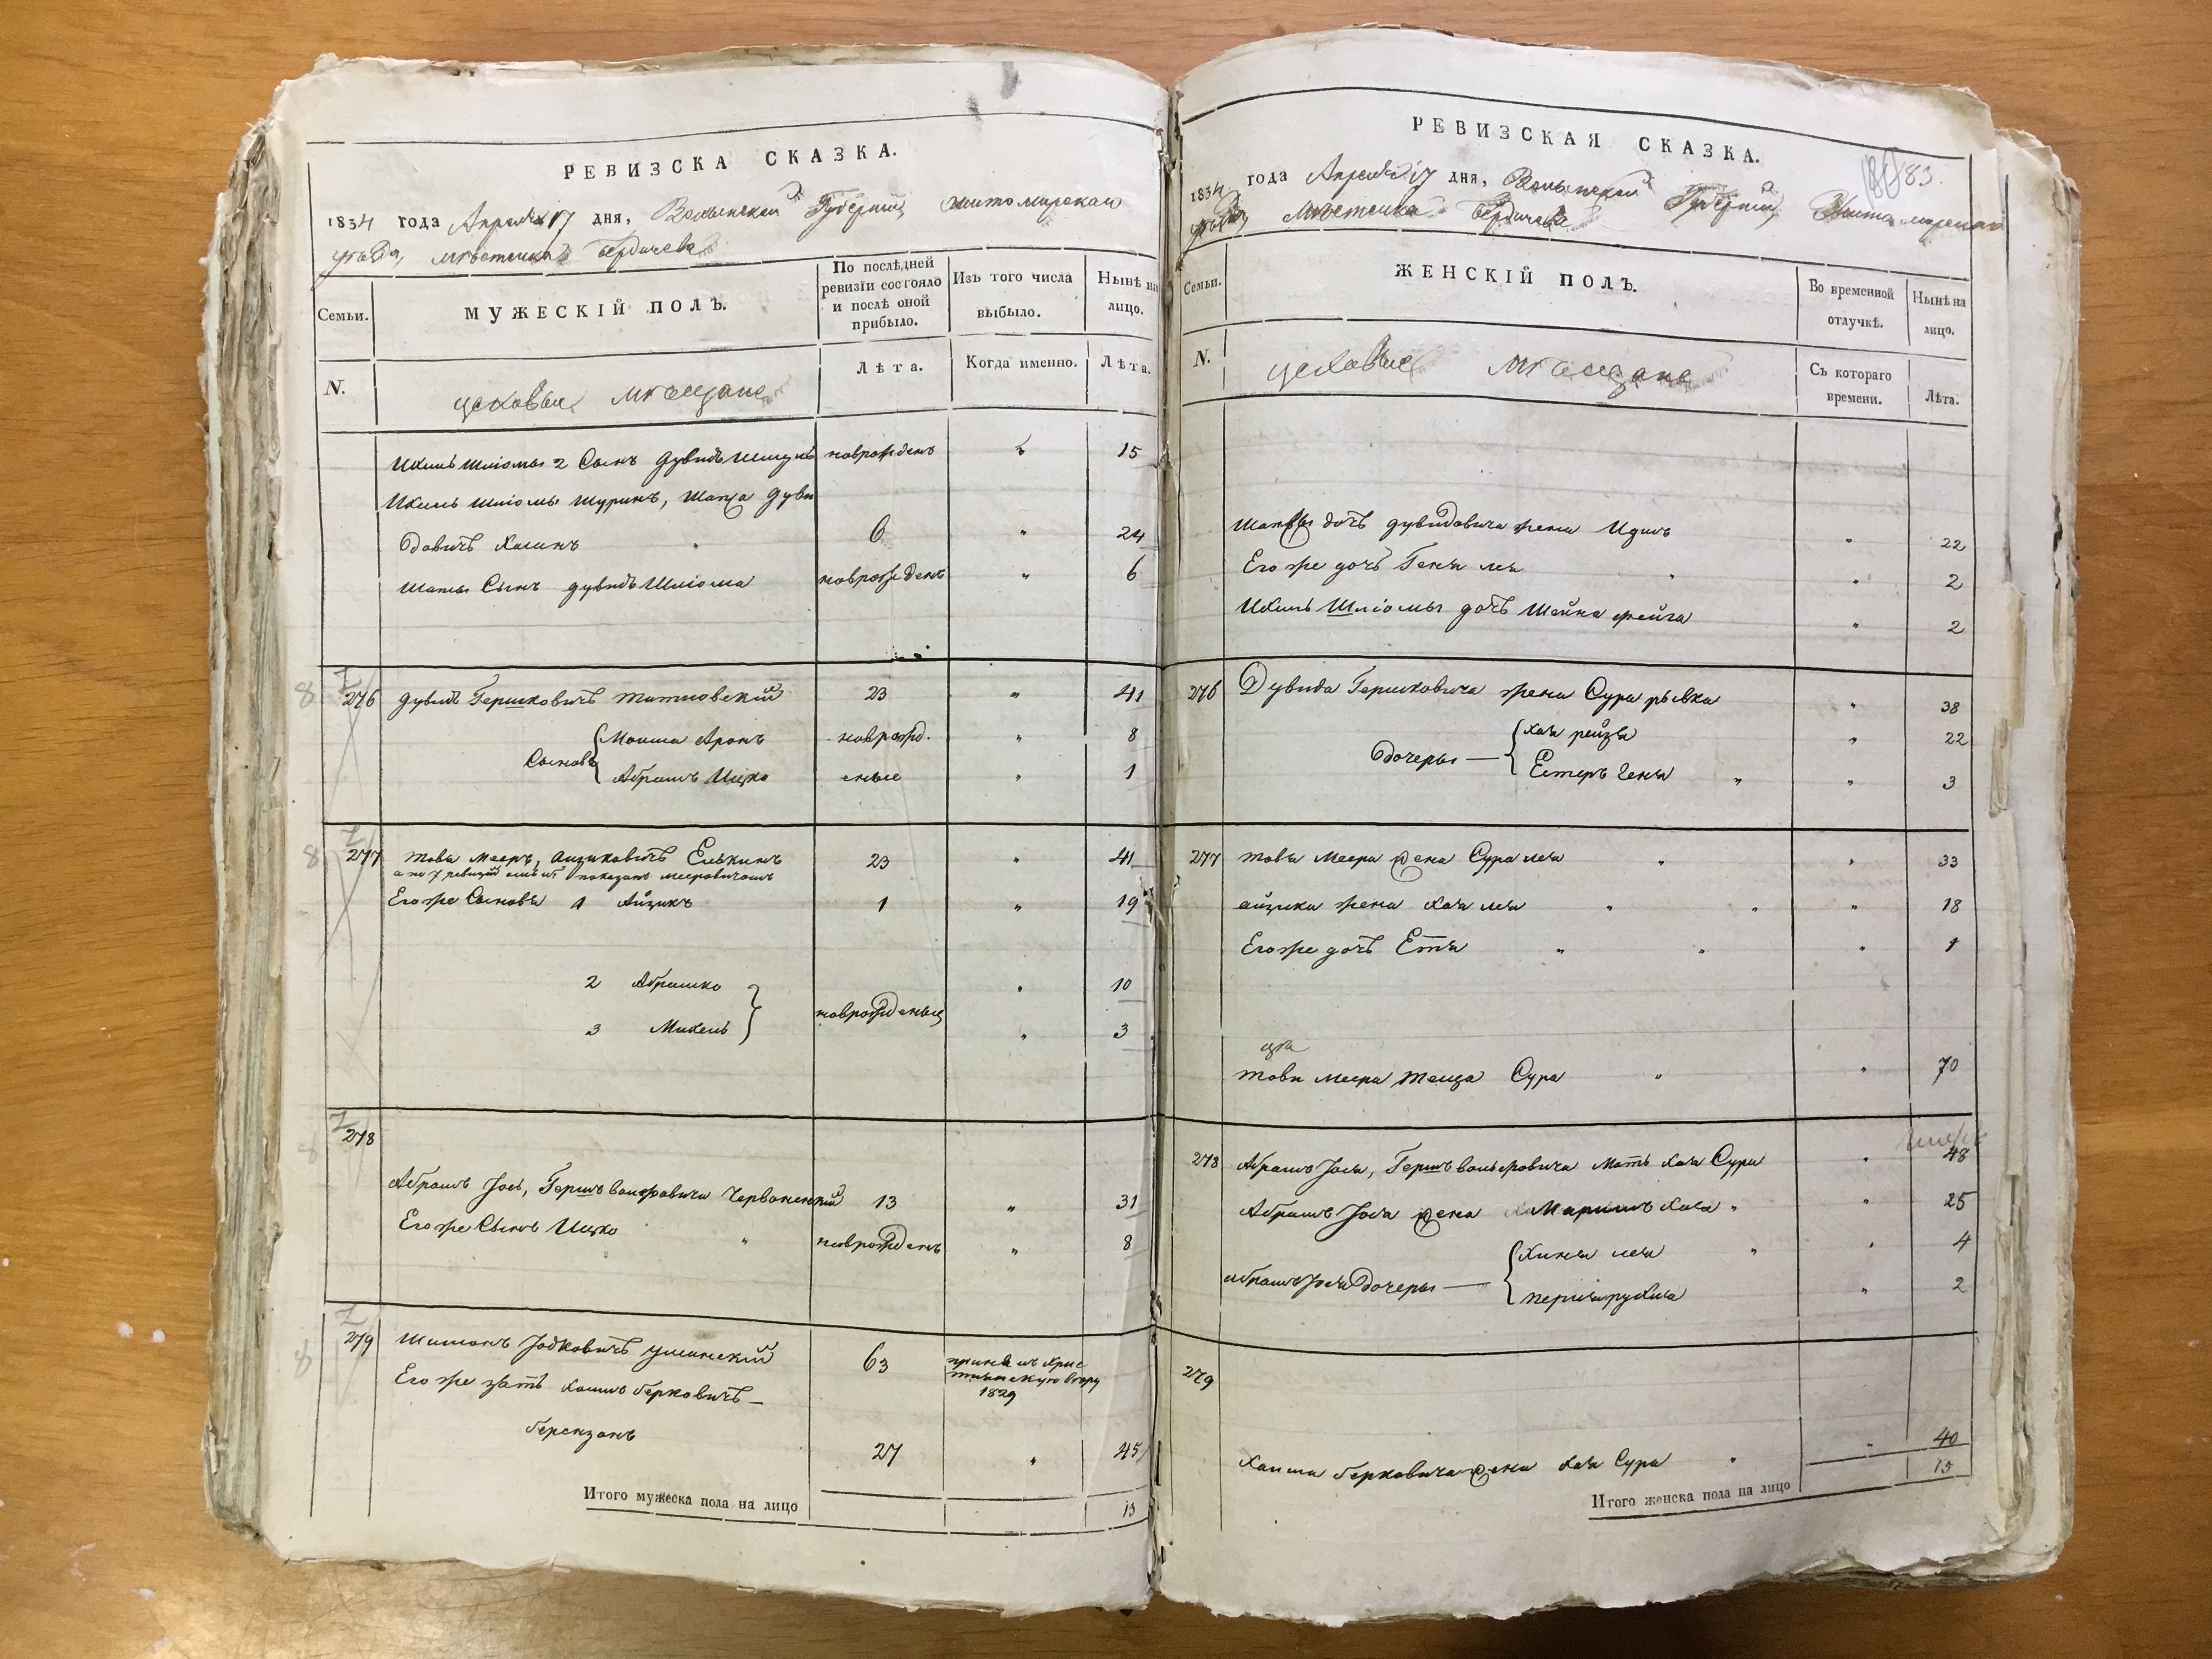 РЕВИЗСКА СКАЗКА.
1834 года Апреля 17 дня, Волынской Губернии, житомирскаго
уѣзда, мѣстечка Бердичева
Семьи.
МУЖЕСКІЙ ПОЛЪ.
По послѣдней ревизіи состояло и послѣ оной прибыло.
Изъ того числа выбыло.
Нынѣ на лицо.
N.
Лѣта.
Когда именно.
Лѣта.
цеховые мѣщане
Ихиль Шліомы 2 Сынъ дувидъ новрожденъ " 15
Ихиль Шліомы Шуринъ, Шапса Дуви
довичъ 6 " 24
Сынъ дувидъ Шліома новрожденъ " 6
276 дувидъ Гершковичъ 23 " 41
Сыновья { Моиша Аронъ новрожд. " 8
Абрамъ Ицко еные " 1
277 това Мееръ, Аизиковичъ Елькинъ 23 " 41
а по 7 ревизіи показанъ Мееровичомъ
Его же Сыновья 1 Айзикъ 1 " 19
2 Абрашко " 10
новрожденыя
3 Михель " 3
278
Абрамъ Іось, Гершъ Червоненскій 13 " 31
Его же Сынъ Ицко " новрожденъ " 8
279 Шимонъ Іовковичъ Уманскій 63 принялъ хрис
тианскую вѣру
1829
Его же зять Хаимъ Берковичъ —
Берензонъ
27 " 45
Итого мужеска пола на лицо 13
РЕВИЗСКАЯ СКАЗКА.
183.
1834 года Апреля 17 дня, Волынской Губерніи, Житомирскаго
уѣзда, Мѣстечка Бердичева
Семьи.
ЖЕНСКІЙ ПОЛЪ.
Во временной отлучкѣ.
Нынѣ на лицо.
N.
Съ котораго времени.
Лѣта.
цеховые мѣщане
дувидовича жена Идись " 22
Его же дочь Геня лея " " 2
Ихиль Шліомы дочь Шейна фейга " 2
276 Дувида Гершковича жена Сура рывка " 38
Дочеры — { хая рейзя " 22
Естеръ Геня " " 3
277 товы Меера жена Сура лея " " 33
айзика жена хая лея " " " 18
Его же дочь Етя " " " 1
това Меера теща Сура " " 70
278 Абрамъ Іося, Гершъ Мать хая Сура " 48
Абрамъ Іося жена Маримъ хая " " 25
абрамъ Іося Дочеры — { хиня лея " " 4
" 2
279
Хаима Берковича жена хая Сура " " 40
Итого женска пола на лицо 15